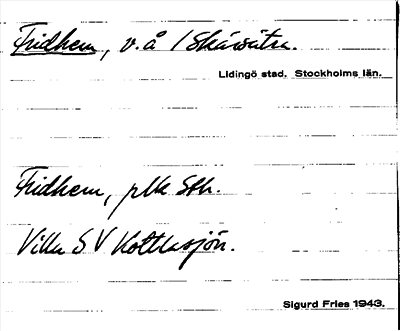 Fridhem, v. å 1 Skärsätra.
Lidingö stad. Stockholms län.
Fridhem, plk Sth.
Villa S V Kottlasjön.
Sigurd Fries 1943.